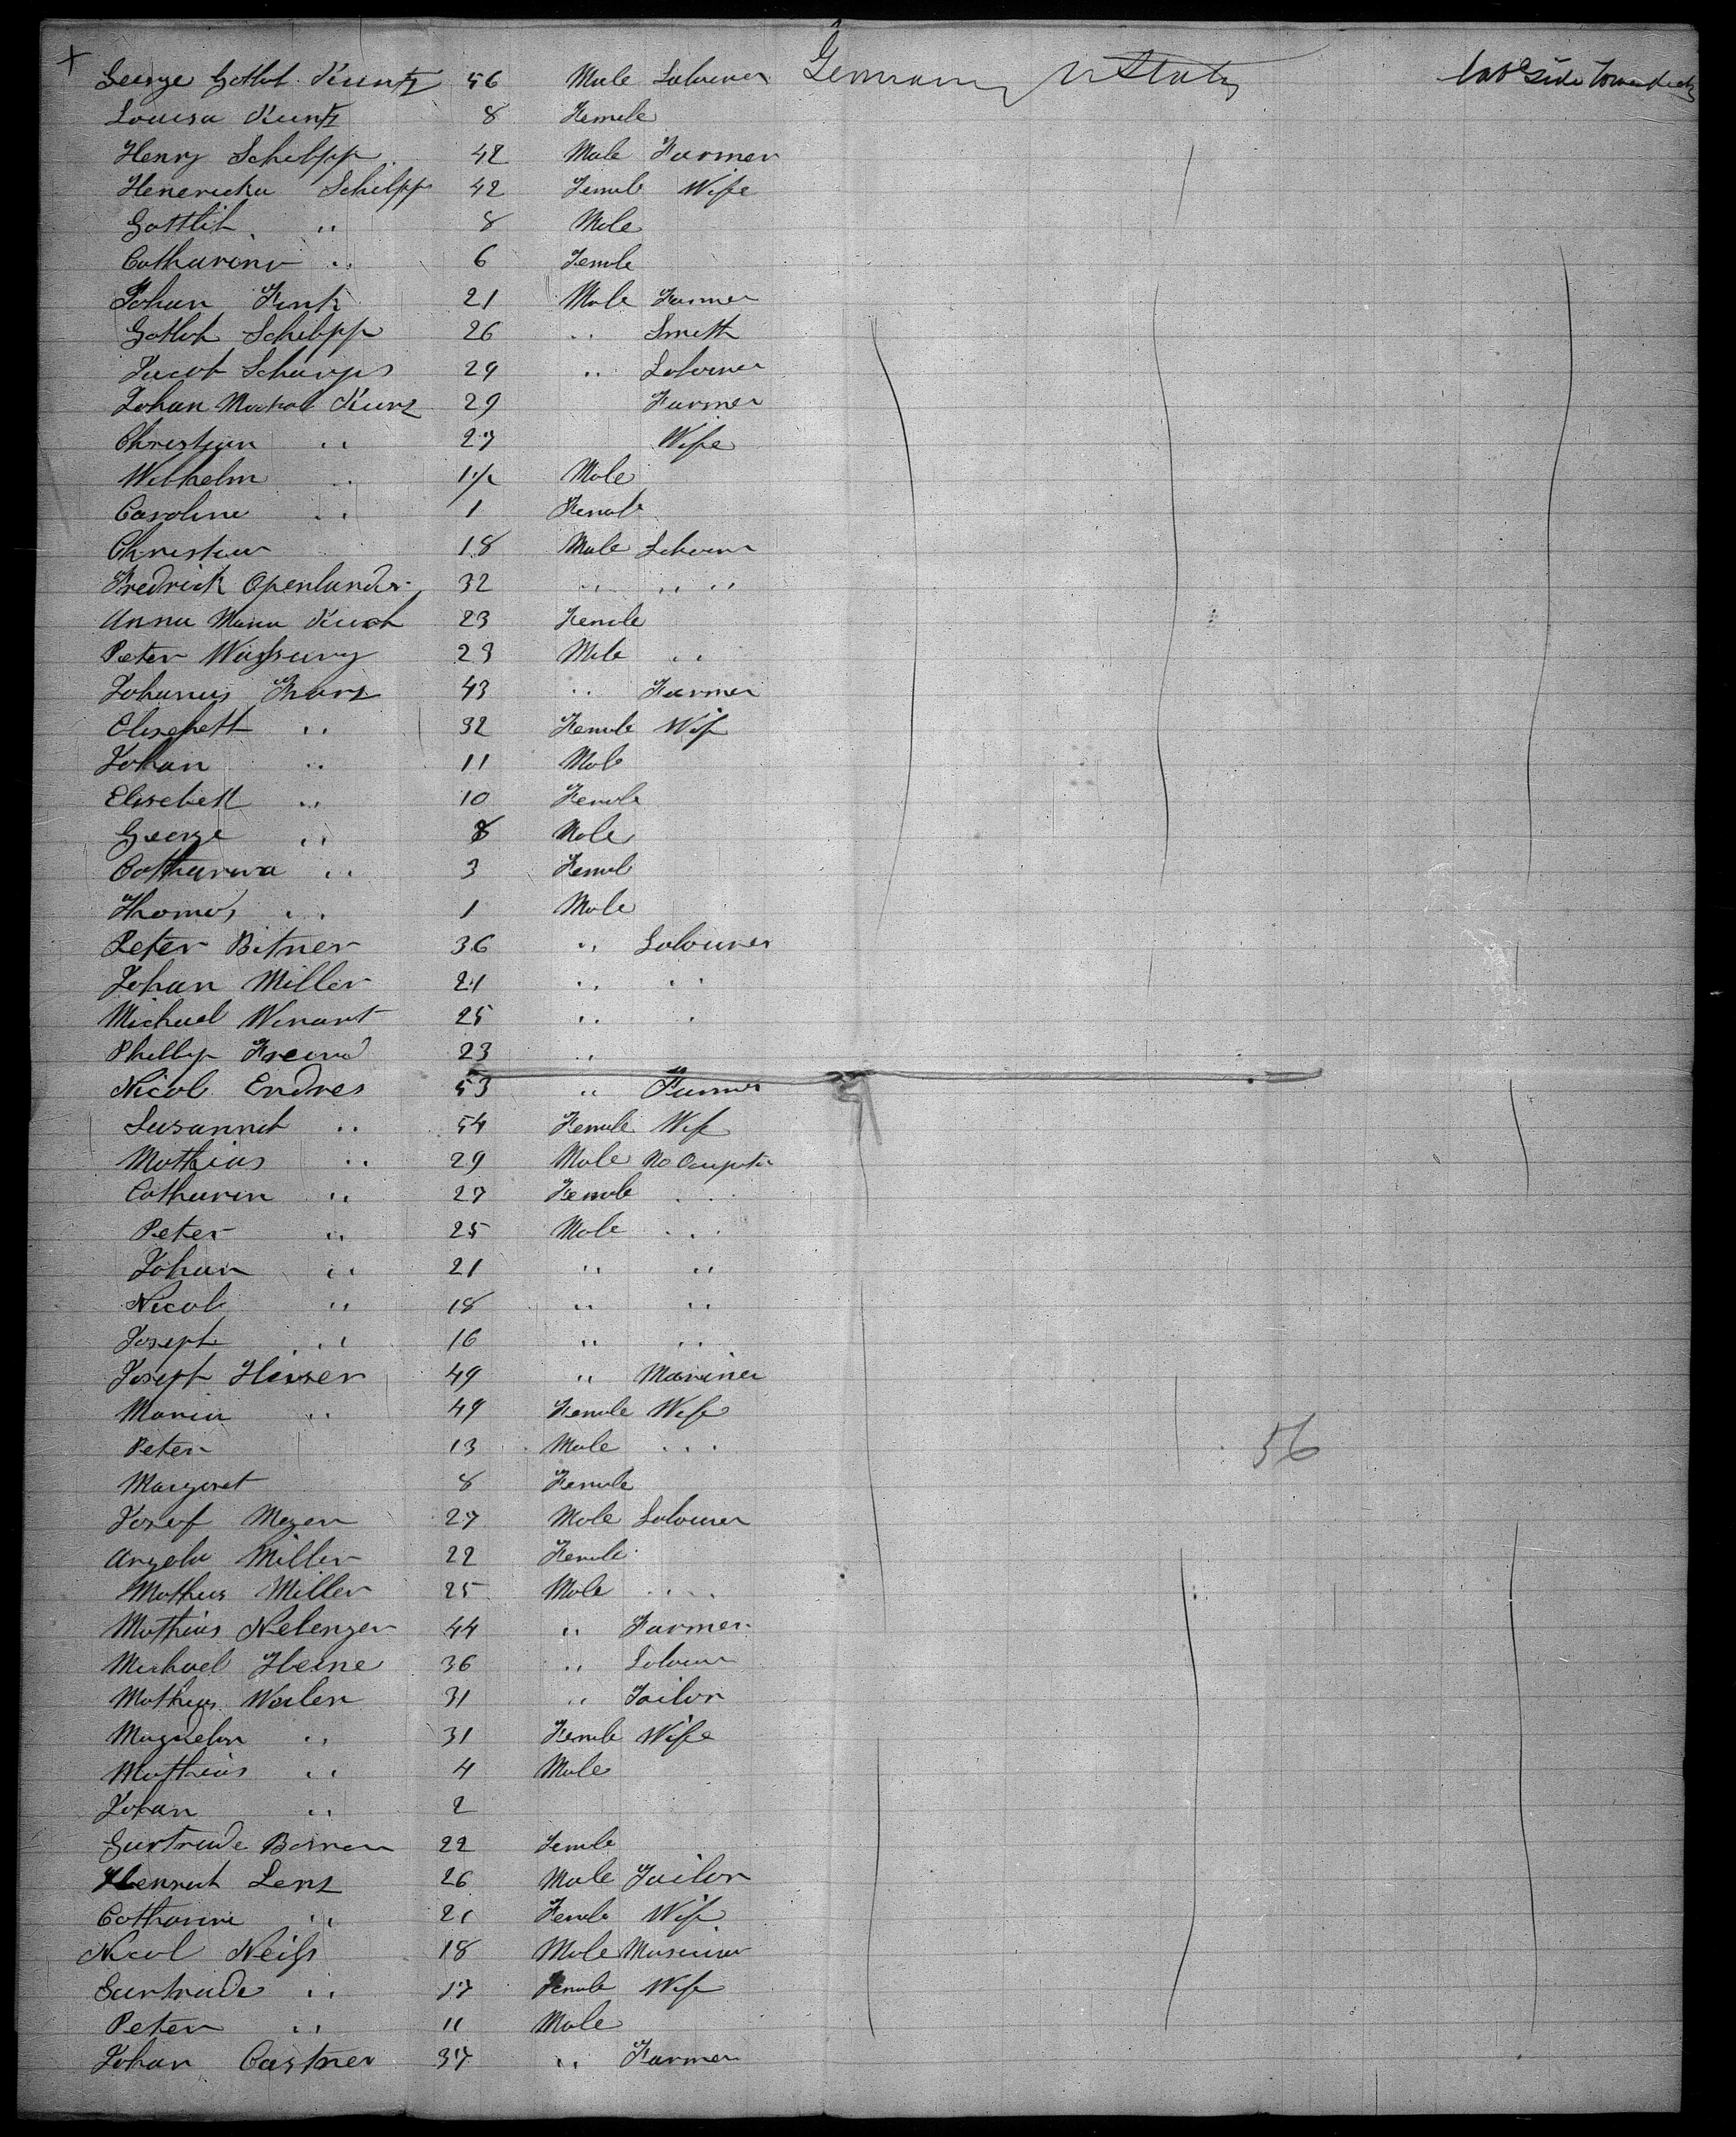 + George Gotlob Kuntz 56 Male Labourer Germany U States Side Lower deck
Louisa Kuntz 8 Female
Henry Schilpp 42 Male Farmer
Henericka Schilpp 42 Female Wife
Gottlib " 8 Male
Catharina " 6 Female
Johan Fink 21 Male Farmer
Gotlob Schilpp 26 " Smith
Jacob Scharps 29 " Labourer
Johan Kurz 29 Farmer
Christian " 27 Wife
Wilhelm " 1½ Male
Caroline " 1 Female
Christian 18 Male Labourer
Fredrick Openlander 32 " " "
Anna Maria 23 Female
Peter 23 Male "
Johanus Franz 43 " Farmer
Elisebett " 32 Female Wife
Johan " 11 Male
Elisebett " 10 Female
George " 8 Male
Catharina " 3 Female
Thomas " 1 Male
Peter Bitner 36 " Labourer
Johan Miller 21 " "
Michael Winart 25 " "
Phillip Freund 23 "
Nicol Endres 53 " Farmer
Susannet " 54 Female Wife
Mathias " 29 Male No Ocupatin
Catharin " 27 Female "
Peter " 25 Male "
Johan " 21 " "
Nicol " 18 " "
Joseph " 16 " "
Joseph Heiser 49 " Mariner
Maria " 49 Female Wife
Peter 13 Male " 56
Margaret 8 Female
Josef Meyer 27 Male Labourer
Angela Miller 22 Female
Mathias Miller 25 Male "
Mathias Nelenger 44 " Farmer
Michael Heine 36 " Labourer
Mathias Weiler 31 " Tailor
Magdelon " 31 Female Wife
Mathias " 4 Male
Johan " 2
Gertrude 22 Female
Henrich Lenz 26 Male Tailor
Catharine " 21 Female Wife
Nicol Neils 18 Male
Gertrude " 17 Female Wife
Peter " 11 Male
Johan Castner 37 " Farmer